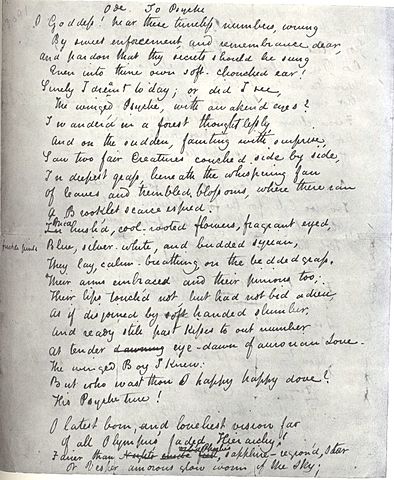 Ode. To Psyche
O Goddess! hear these tuneless numbers, wrung
By sweet enforcement, and remembrance dear,
And pardon that thy secrets should be sung
Even into thine own soft-chonched ear!
Surely I dreamt to day; or did I see,
The winged Psyche, with awaken'd eyes?
I wander'd in a forest thoughtlessly,
And on the sudden, fainting with surprise,
Saw two fair Creatures couched side by side,
In deepest grass, beneath the whispering fan
Of leaves and trembled blossoms, where there ran
A Brooklet scarce espied.
hush'd, cool-rooted flowers, fragrant eyed,
Blue, silver-white, and budded syrian,
They lay, calm-breathing on the bedded grass.
Their arms embraced and their pinions too;
Their lips touch'd not but had not bid adieu,
As if disjoined by soft handed slumber,
And ready still past kisses to out number
At tender dawning eye-dawn of aurorian Love.
The winged Boy I knew:
But who wast thou O happy happy dove?
His Psyche true!
O latest born, and loveliest vision far
Of all Olympus' faded Hierarchy!
Fairer than Phoebe's sapphire-region'd star
Or Vesper amorous glow worm of the sky;